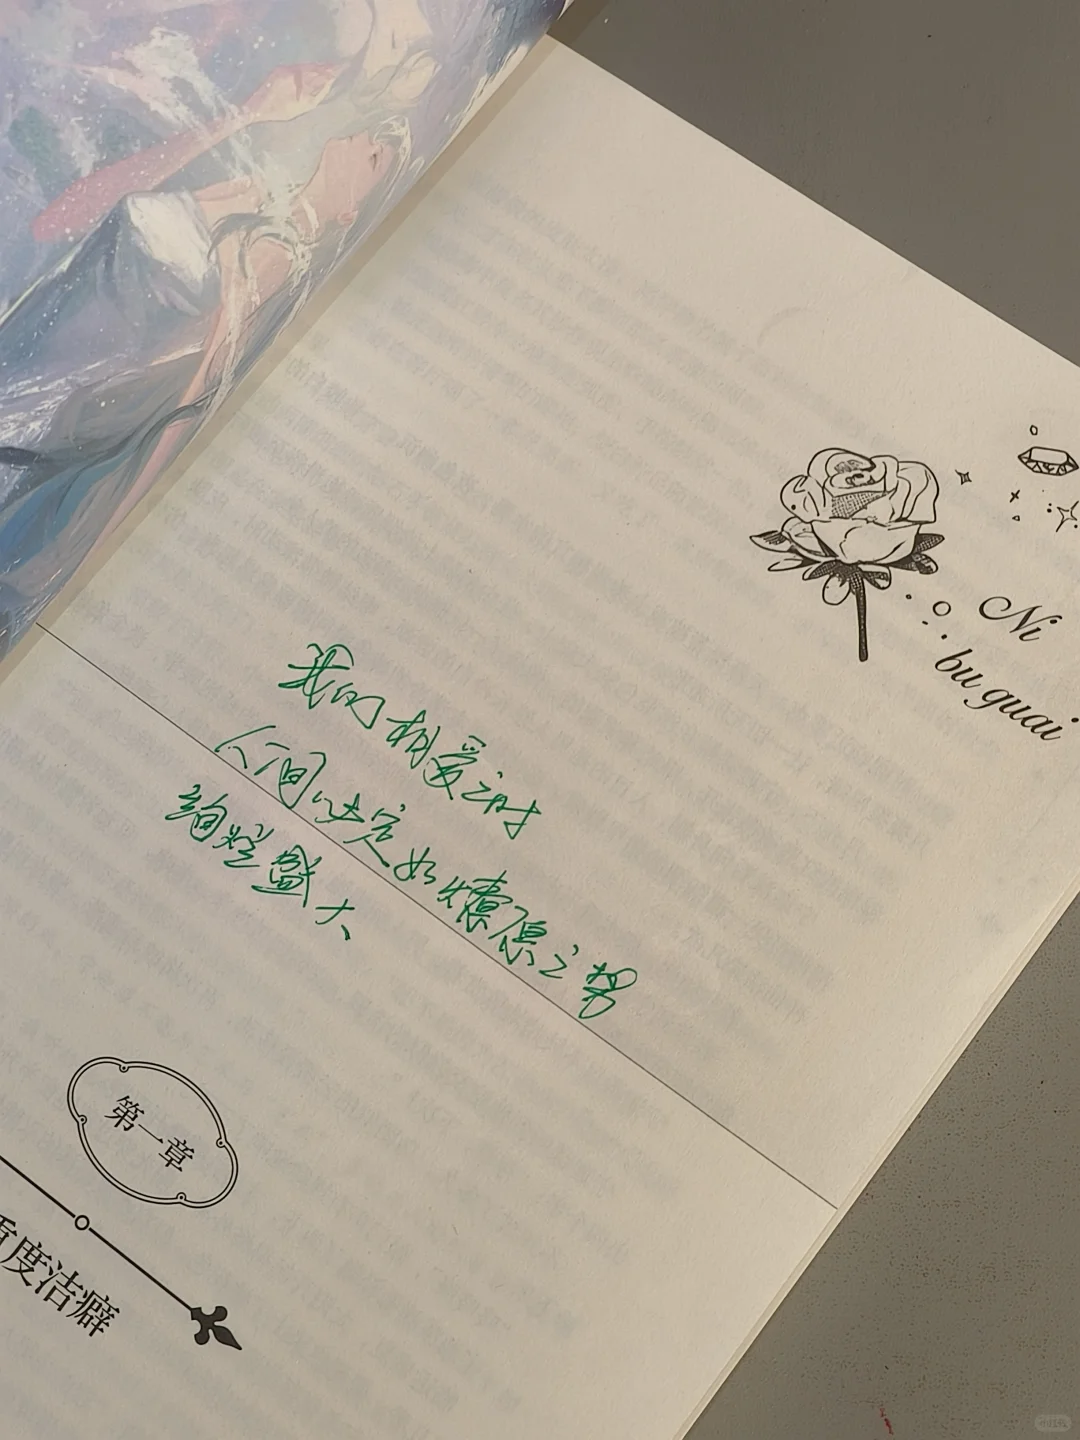 Ni
bu guai
我们相爱之时
人间必定如燎原之势
绚烂盛大
第一章
重度洁癖